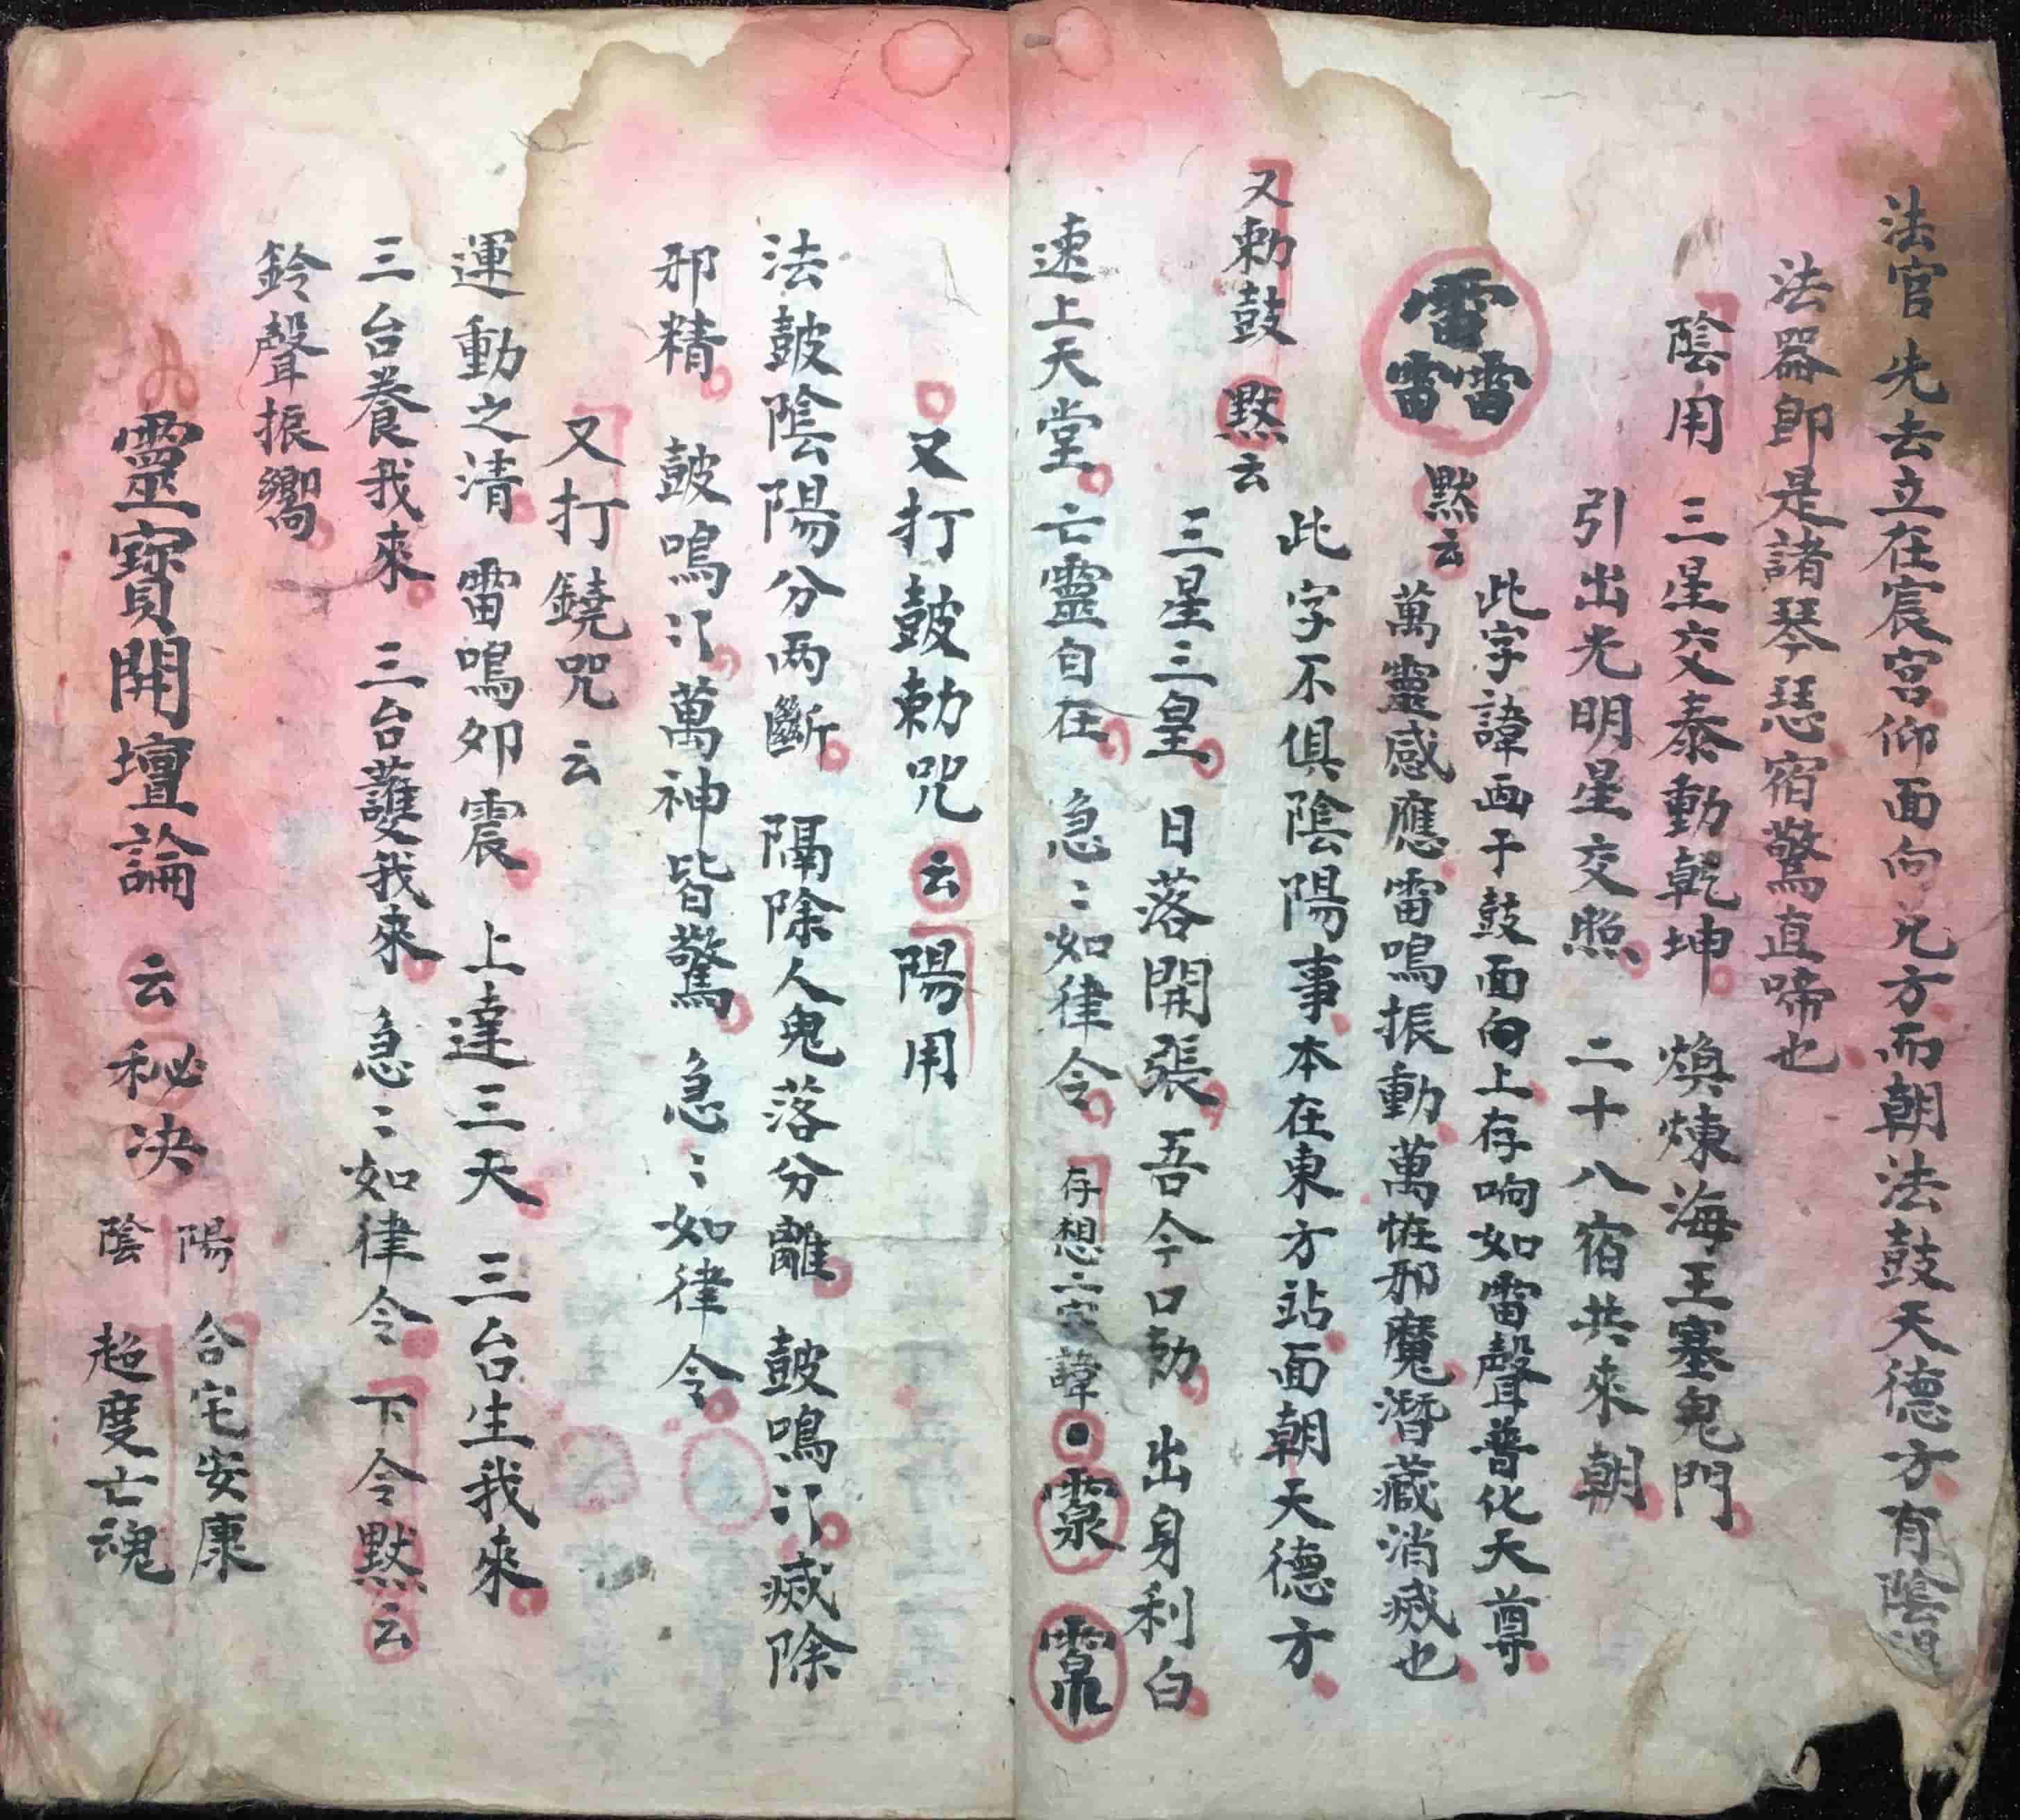 法官先去立在宸宮仰面向兌方而朝法鼓天德方有陰
法器即是諸琴瑟宿驚直啼也
陰用 三星交泰動乾坤 煥煉海王塞鬼門
引出光明星交照 二十八宿共來朝
此字諱画于鼓面向上存响如雷聲普化天尊
雷雷雷 默云 萬靈感應雷鳴振動萬恠邪魔潛藏消滅也
此字不俱陰陽事本在東方站面朝天德方
又勅鼓 默云
三星三皇 日落開張 吾今口勅 出身利白
速上天堂 亡靈自在 急〻如律令 存想二字諱
又打皷勅咒 云 陽用
法皷陰陽分两斷 隔除人鬼落分離 皷鳴〻滅除
邪精 皷鳴〻萬神皆驚 急〻如律令
又打鐃咒 云
運動之清 雷鳴如震 上達三天 三台生我來
三台養我來 三台護我來 急〻如律令 下令默云
鈴聲振嚮
靈寳開壇論 云 秘决 陽 合宅安康
陰 超度亡魂